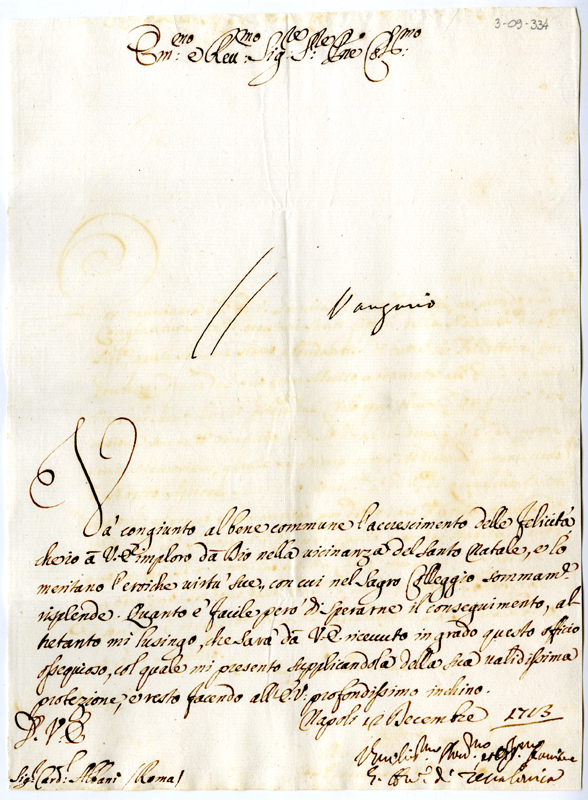 3-09-334
Em:mo e Reu:mo Sig:re
Vangurio
Và congiunto al bene commune l'accrescimento delle felicità
che io à V. E. imploro dà Dio nella vicinanza del Santo Natale, e lo
meritano l'eroiche virtù sue, con cui nel Sagro Colleggio sommam:te
risplende. Quanto è facile però di sperarne il conseguimento, al-
tretanto mi lusingo, che sarà dà V. E. riceuuto in grado questo officio
ossequioso, col quale mi presento supplicandola della sua ualidissima
protezione; e resto facendo all'E. V. profondissimo inchino.
Napoli 12 Decembre 1713
D. V. E.
Sig:r Card:l Albani /Roma/